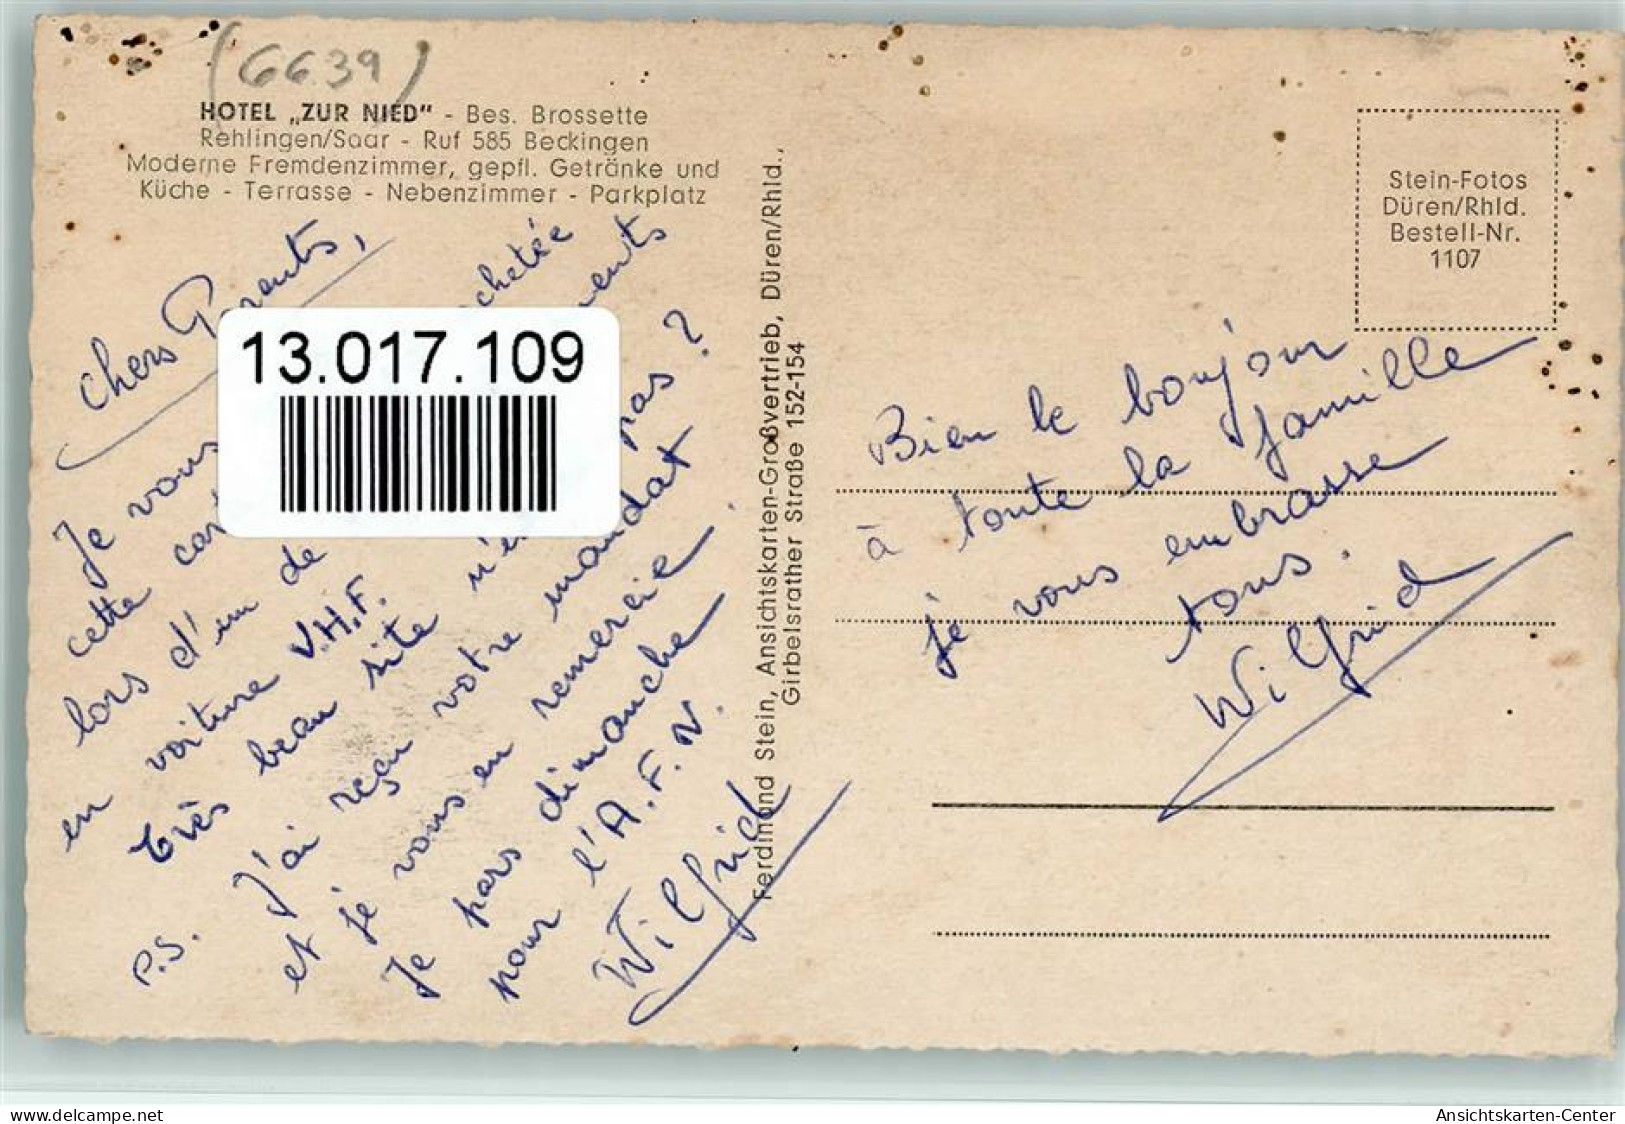 (6639)
HOTEL „ZUR NIED" - Bes. Brossette
Rehlingen/Saar - Ruf 585 Beckingen
Moderne Fremdenzimmer, gepfl. Getränke und
Küche - Terrasse - Nebenzimmer - Parkplatz
Chers Parents,
Je vous chetée
cette car
lors d'un de ents
en voiture V.H.F.
très beau site n'e pas ?
P.S. J'ai reçu votre mandat
et je vous en remercie.
Je pars dimanche
pour l'A.F.N.
Wilfrid
13.017.109
Ferdinand Stein, Ansichtskarten-Großvertrieb, Düren/Rhld.,
Girbelsrather Straße 152-154
Stein-Fotos
Düren/Rhld.
Bestell-Nr.
1107
Bien le bonjour
à toute la famille
je vous embrasse
tous.
Wilfrid
www.delcampe.net
Ansichtskarten-Center